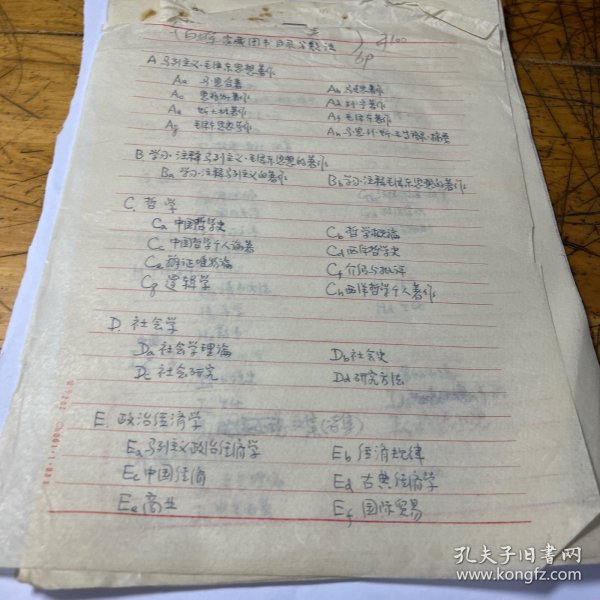 图书目录分类法
A 马列主义·毛泽东思想著作
Aa 马恩合著 Ab 马克思著作
Ac 恩格斯著作 Ad 列宁著作
Ae 斯大林著作 Af 毛泽东著作
Ag
B 学习·注释马列主义·毛泽东思想的著作
Ba 学习·注释马列主义的著作 Bb 学习·注释毛泽东思想的著作
C. 哲学
Ca 中国哲学史 Cb 哲学概论
Cc 中国哲学个人论著 Cd 西洋哲学史
Ce 辩证唯物论 Cf 介绍与批评
Cg 逻辑学 Ch 西洋哲学个人著作
D. 社会学
Da 社会学理论 Db 社会史
Dc 社会研究 Dd 研究方法
E. 政治经济学
Ea 马列主义政治经济学 Eb 经济规律
Ec 中国经济 Ed 古典经济学
Ee 商业 Ef 国际贸易
孔夫子旧书网
www.kongfz.com